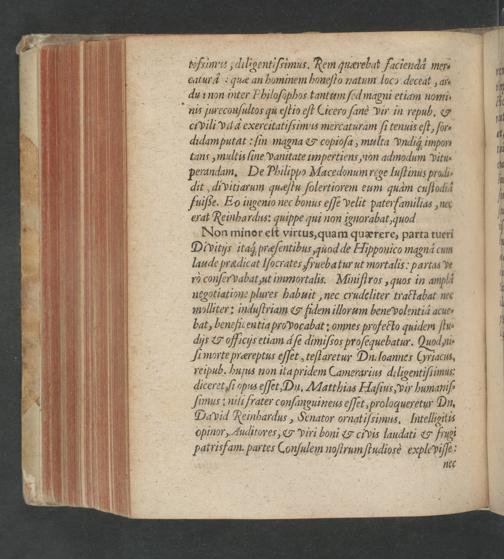 tissimus, diligentissimus. Rem quærebat faciendâ mer-
caturâ: quæ an hominem honesto natum loco deceat, ar-
dui non inter Philosophos tantum sed magni etiam nomi-
nis jureconsultos quęstio est Cicero sanè vir in repub. &
civili vitâ exercitatissimus mercaturam si tenuis est, sor-
didam putat: sin magna & copiosa, multa undiq; impor-
tans, multis sine vanitate impertiens, non admodum vitu-
perandam. De Philippo Macedonum rege Iustinus prodi-
dit, divitiarum quæstu solertiorem eum quàm custodiâ
fuisse. Eo ingenio nec bonus esse velit paterfamilias, nec
erat Reinhardus: quippe qui non ignorabat, quod
Non minor est virtus, quam quærere, parta tueri
Divitijs itaq; præsentibus, quod de Hipponico magnâ cum
laude prædicat Isocrates, fruebatur ut mortalis: partas ve-
rò conservabat, ut immortalis. Ministros, quos in amplâ
negotiatione plures habuit, nec crudeliter tractabat nec
molliter: industriam & fidem illorum benevolentiâ acue-
bat, beneficentia provocabat: omnes profecto quidem stu-
dijs & officijs etiam á se dimissos prosequebatur. Quod, ni-
si morte præreptus esset, testaretur Dn. Ioannes Cyriacus,
reipub. hujus non ita pridem Camerarius diligentissimus:
diceret, si opus esset, Dn. Matthias Hasius, vir humanis-
simus: nisi frater consanguineus esset, proloqueretur Dn.
David Reinhardus, Senator ornatissimus. Intelligitis
opinor, Auditores, & viri boni & civis laudati & frugi
patrisfam. partes Consulem nostrum studiosè explevisse:
nec